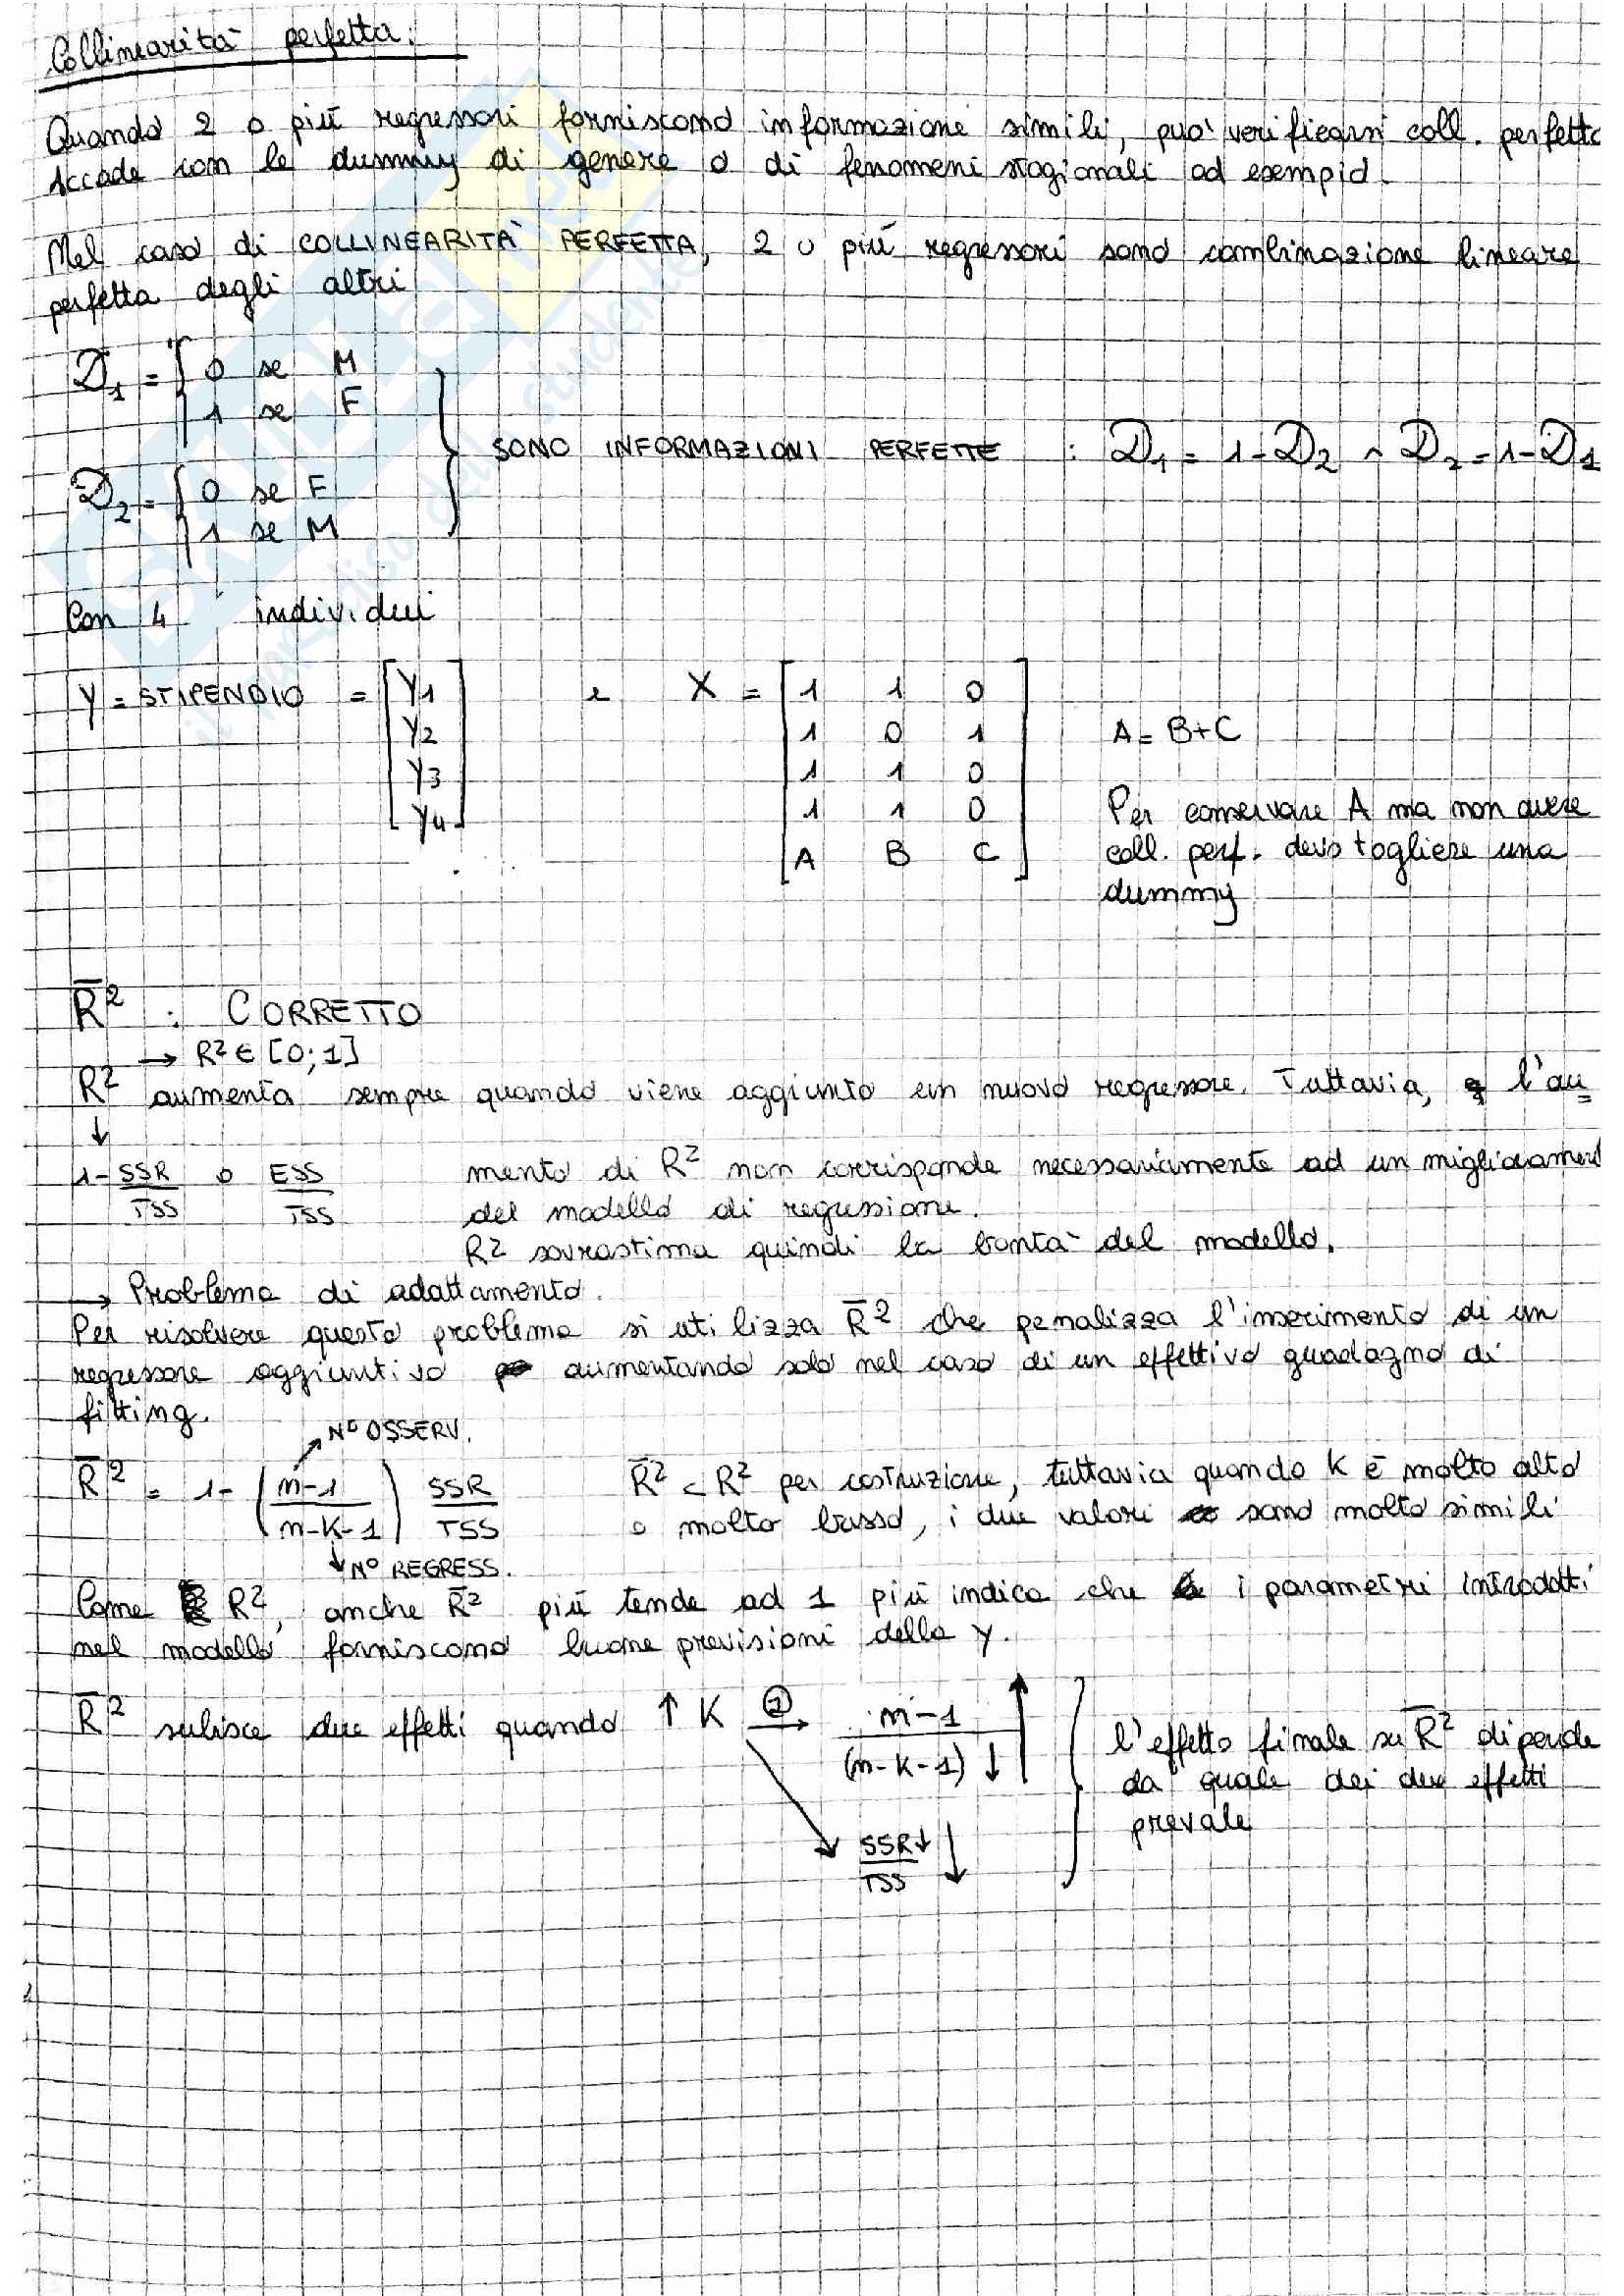 Collinearità perfetta:
Quando 2 o più regressori forniscono informazione simili, puo' verificarsi coll. perfetta
Accade con le dummy di genere o di fenomeni stagionali ad esempio.
Nel caso di COLLINEARITA' PERFETTA, 2 o più regressori sono combinazione lineare
perfetta degli altri
D1 = { 0 se M
1 se F
SONO INFORMAZIONI PERFETTE : D1 = 1-D2 ^ D2 = 1-D1
D2 = { 0 se F
1 se M
Con 4 individui
Y = STIPENDIO = [ Y1 e X = [ 1 1 0
Y2 1 0 1 A = B+C
Y3 1 1 0
Y4 1 1 0 Per conservare A ma non avere
A B C coll. perf. devo togliere una
dummy
R̄² : CORRETTO
→ R² ∈ [0;1]
R² aumenta sempre quando viene aggiunto un nuovo regressore. Tuttavia, l'au=
↓
1- SSR/TSS o ESS/TSS mento di R² non corrisponde necessariamente ad un miglioramen
del modello di regressione.
R² sovrastima quindi la bontà del modello.
→ Problema di adattamento.
Per risolvere questo problema si utilizza R̄² che penalizza l'inserimento di un
regressore aggiuntivo aumentando solo nel caso di un effettivo guadagno di
fitting.
N° OSSERV.
R̄² = 1- (n-1/n-K-1) SSR/TSS R̄² < R² per costruzione, tuttavia quando K è molto alto
o molto basso, i due valori sono molto simili
↓ N° REGRESS.
Come R², anche R̄² più tende ad 1 più indica che i parametri introdotti
nel modello forniscono buone previsioni della y.
R̄² subisce due effetti quando ↑ K → n-1/(n-K-1) ↓ ↑ l'effetto finale su R̄² dipende
da quale dei due effetti
prevale
SSR↓/TSS ↓